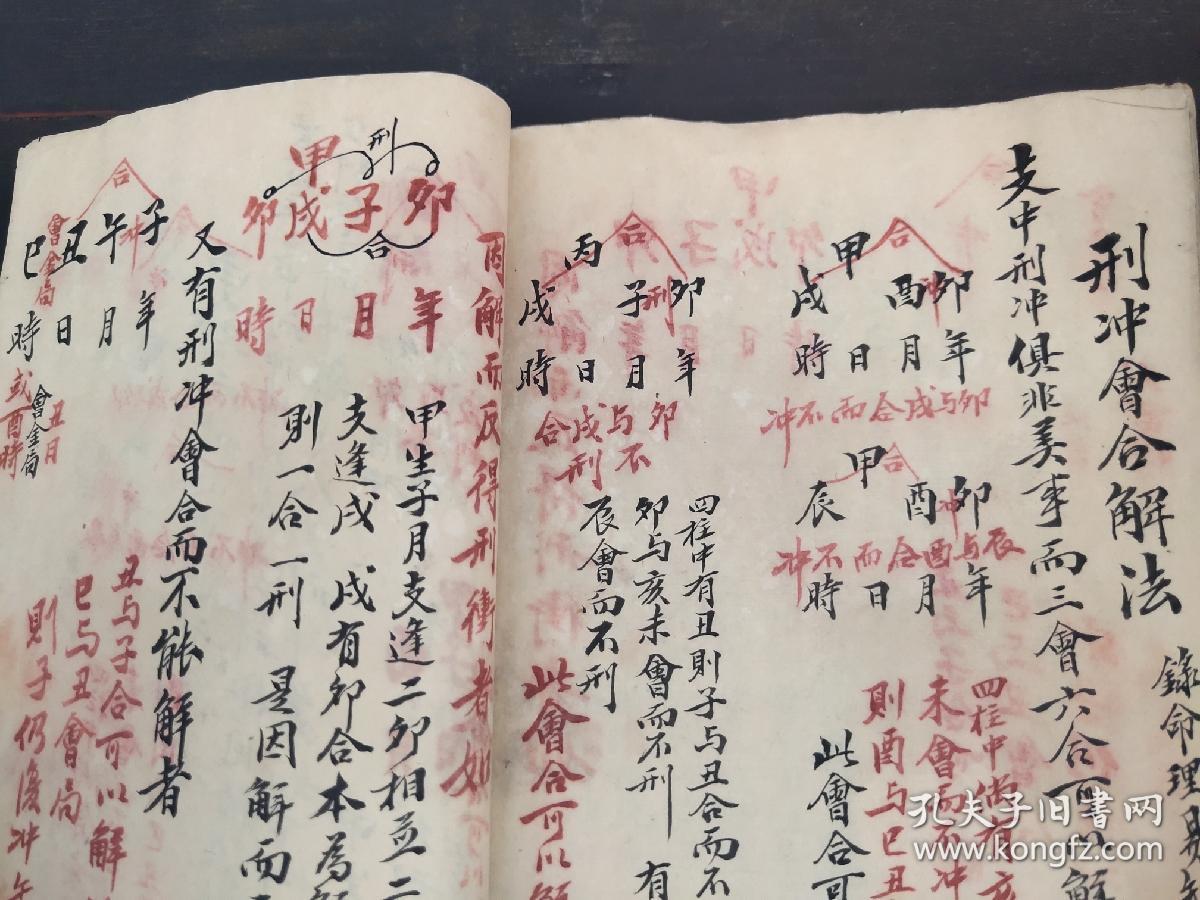 刑冲會合解法
錄命理易
支中刑冲俱非美事而三會六合可以解
合
卯年
酉月
甲日
戌時
冲
卯与戌合而不冲
合
卯年
酉月
甲日
辰時
冲
辰与酉合而不冲
四柱中倘有亥
未會局不冲
則酉与巳丑
此會合可
合
卯年
子月
丙日
戌時
刑
卯与戌合
不刑
四柱中有丑則子与丑合而不
卯与亥未會而不刑 有
辰會而不刑
此會合可以解
因解而反得刑衝者如
刑
卯年
子月
甲戌日
卯時
合
甲生子月支逢二卯相並二
支逢戌 戌有卯合本為
則一合一刑 是因解而
又有刑冲會合而不能解者
合
子年
午月
丑日
巳時
冲
會金局
丑月
會金局
或酉時
丑与子合可以解
巳与丑會局
則子仍復冲午
孔夫子旧书网
www.kongfz.com